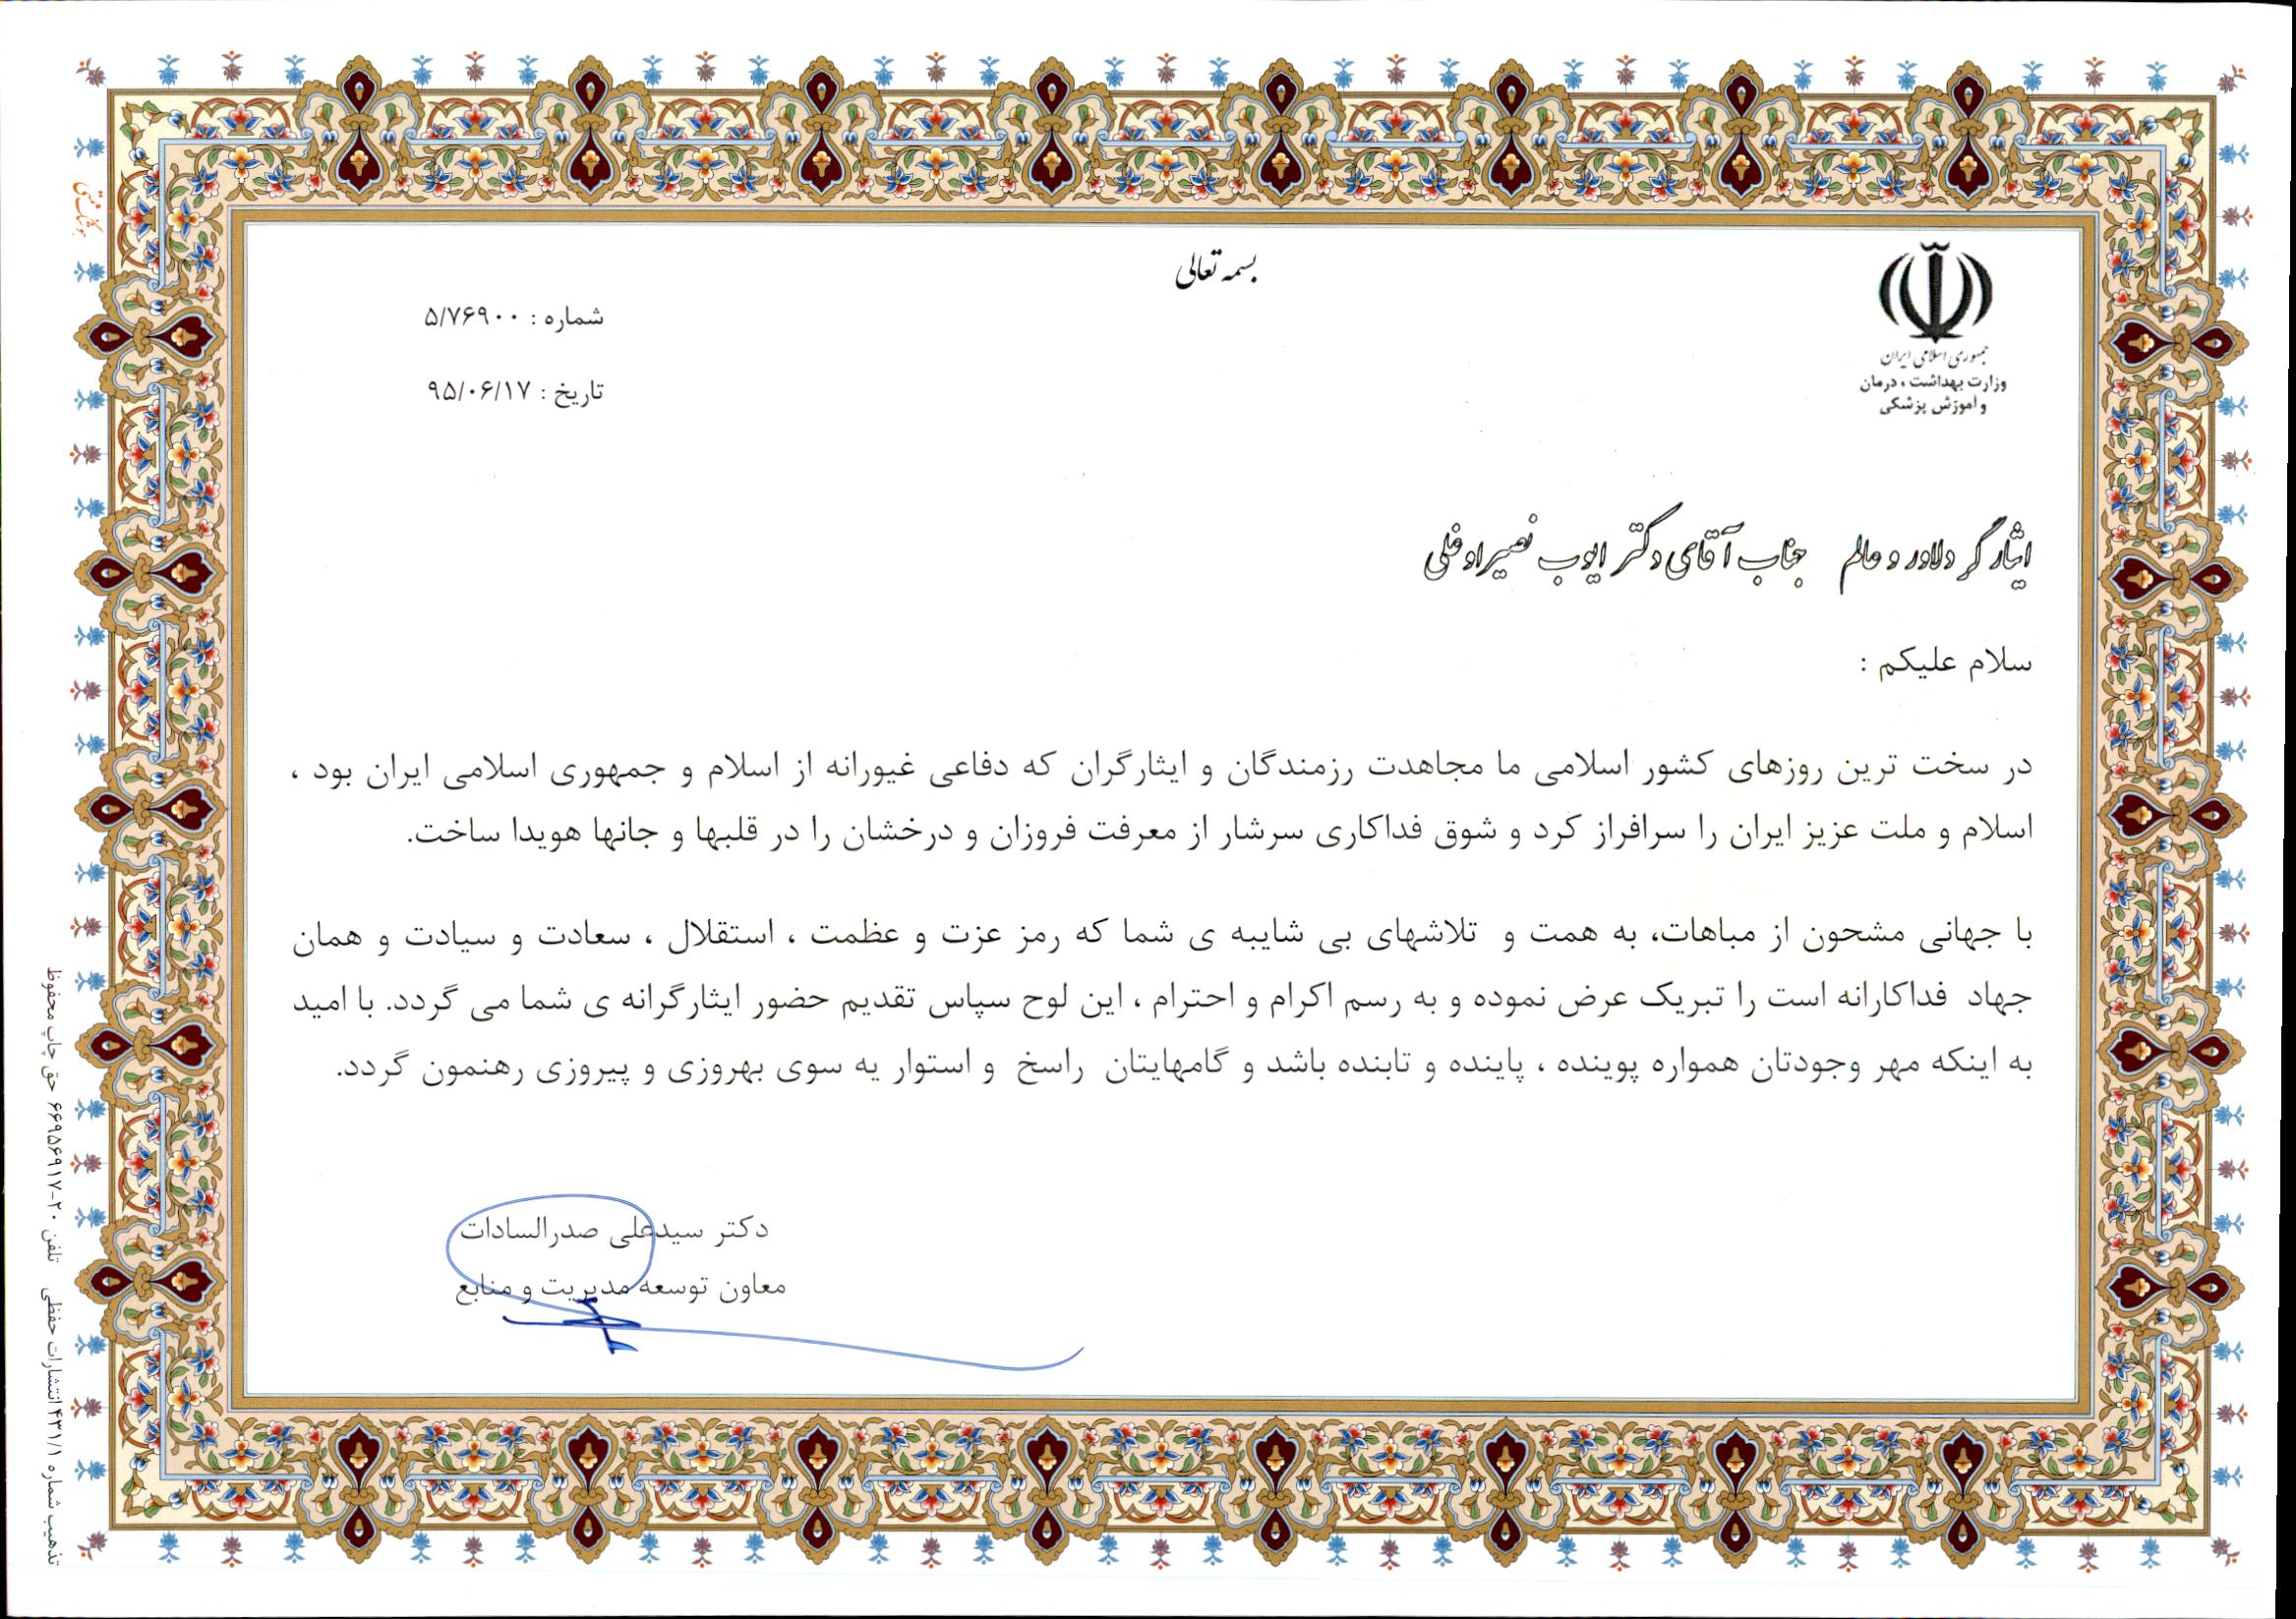 بسمه تعالی
جمهوری اسلامی ایران
وزارت بهداشت ، درمان
و آموزش پزشکی
شماره : ۵/۷۶۹۰۰
تاریخ : ۹۵/۰۶/۱۷
ایثارگر دلاور و عالم جناب آقای دکتر ایوب نصیراوغلی
سلام علیکم :
در سخت ترین روزهای کشور اسلامی ما مجاهدت رزمندگان و ایثارگران که دفاعی غیورانه از اسلام و جمهوری اسلامی ایران بود ،
اسلام و ملت عزیز ایران را سرافراز کرد و شوق فداکاری سرشار از معرفت فروزان و درخشان را در قلبها و جانها هویدا ساخت.
با جهانی مشحون از مباهات، به همت و تلاشهای بی شایبه ی شما که رمز عزت و عظمت ، استقلال ، سعادت و سیادت و همان
جهاد فداکارانه است را تبریک عرض نموده و به رسم اکرام و احترام ، این لوح سپاس تقدیم حضور ایثارگرانه ی شما می گردد. با امید
به اینکه مهر وجودتان همواره پوینده ، پاینده و تابنده باشد و گامهایتان راسخ و استوار یه سوی بهروزی و پیروزی رهنمون گردد.
دکتر سیدعلی صدرالسادات
معاون توسعه مدیریت و منابع
تذهیب شماره ۴۳۱/۱ انتشارات حفظی تلفن ۲۰-۶۶۹۵۶۹۱۷ حق چاپ محفوظ